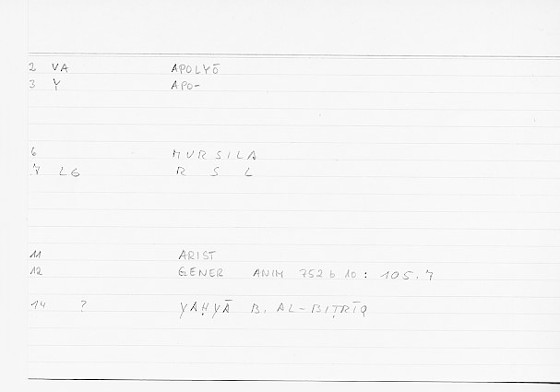 2 VA APOLYŌ
3 Y APO-
6 MURSILA
7 LG R S L
11 ARIST
12 GENER ANIM 752 b 10 : 105.7
14 ? YAḤYĀ B. AL-BIṬRĪQ